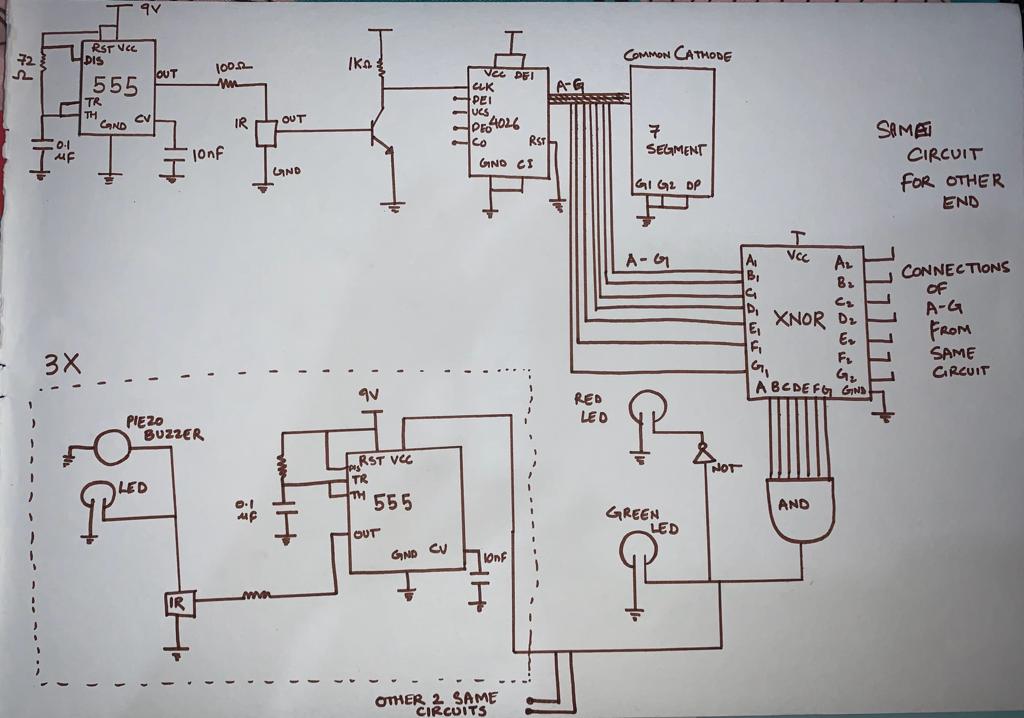 9V
72
Ω
RST VCC
DIS
555
OUT
TR
TH
GND
CV
0.1
μF
10nF
100Ω
IR
OUT
GND
1KΩ
VCC DEI
CLK
DEI
UCS
4026
DEO
CO
RST
GND CI
A-G
COMMON CATHODE
7
SEGMENT
G1 G2 DP
SAME
CIRCUIT
FOR OTHER
END
A-G
VCC
A1
B1
C1
D1
E1
F1
G1
XNOR
A2
B2
C2
D2
E2
F2
G2
GND
A B C D E F G
CONNECTIONS
OF
A-G
FROM
SAME
CIRCUIT
3X
PIEZO
BUZZER
LED
IR
9V
RST VCC
DIS
TR
TH
555
OUT
GND
CV
0.1
μF
10nF
RED
LED
NOT
GREEN
LED
AND
OTHER 2 SAME
CIRCUITS